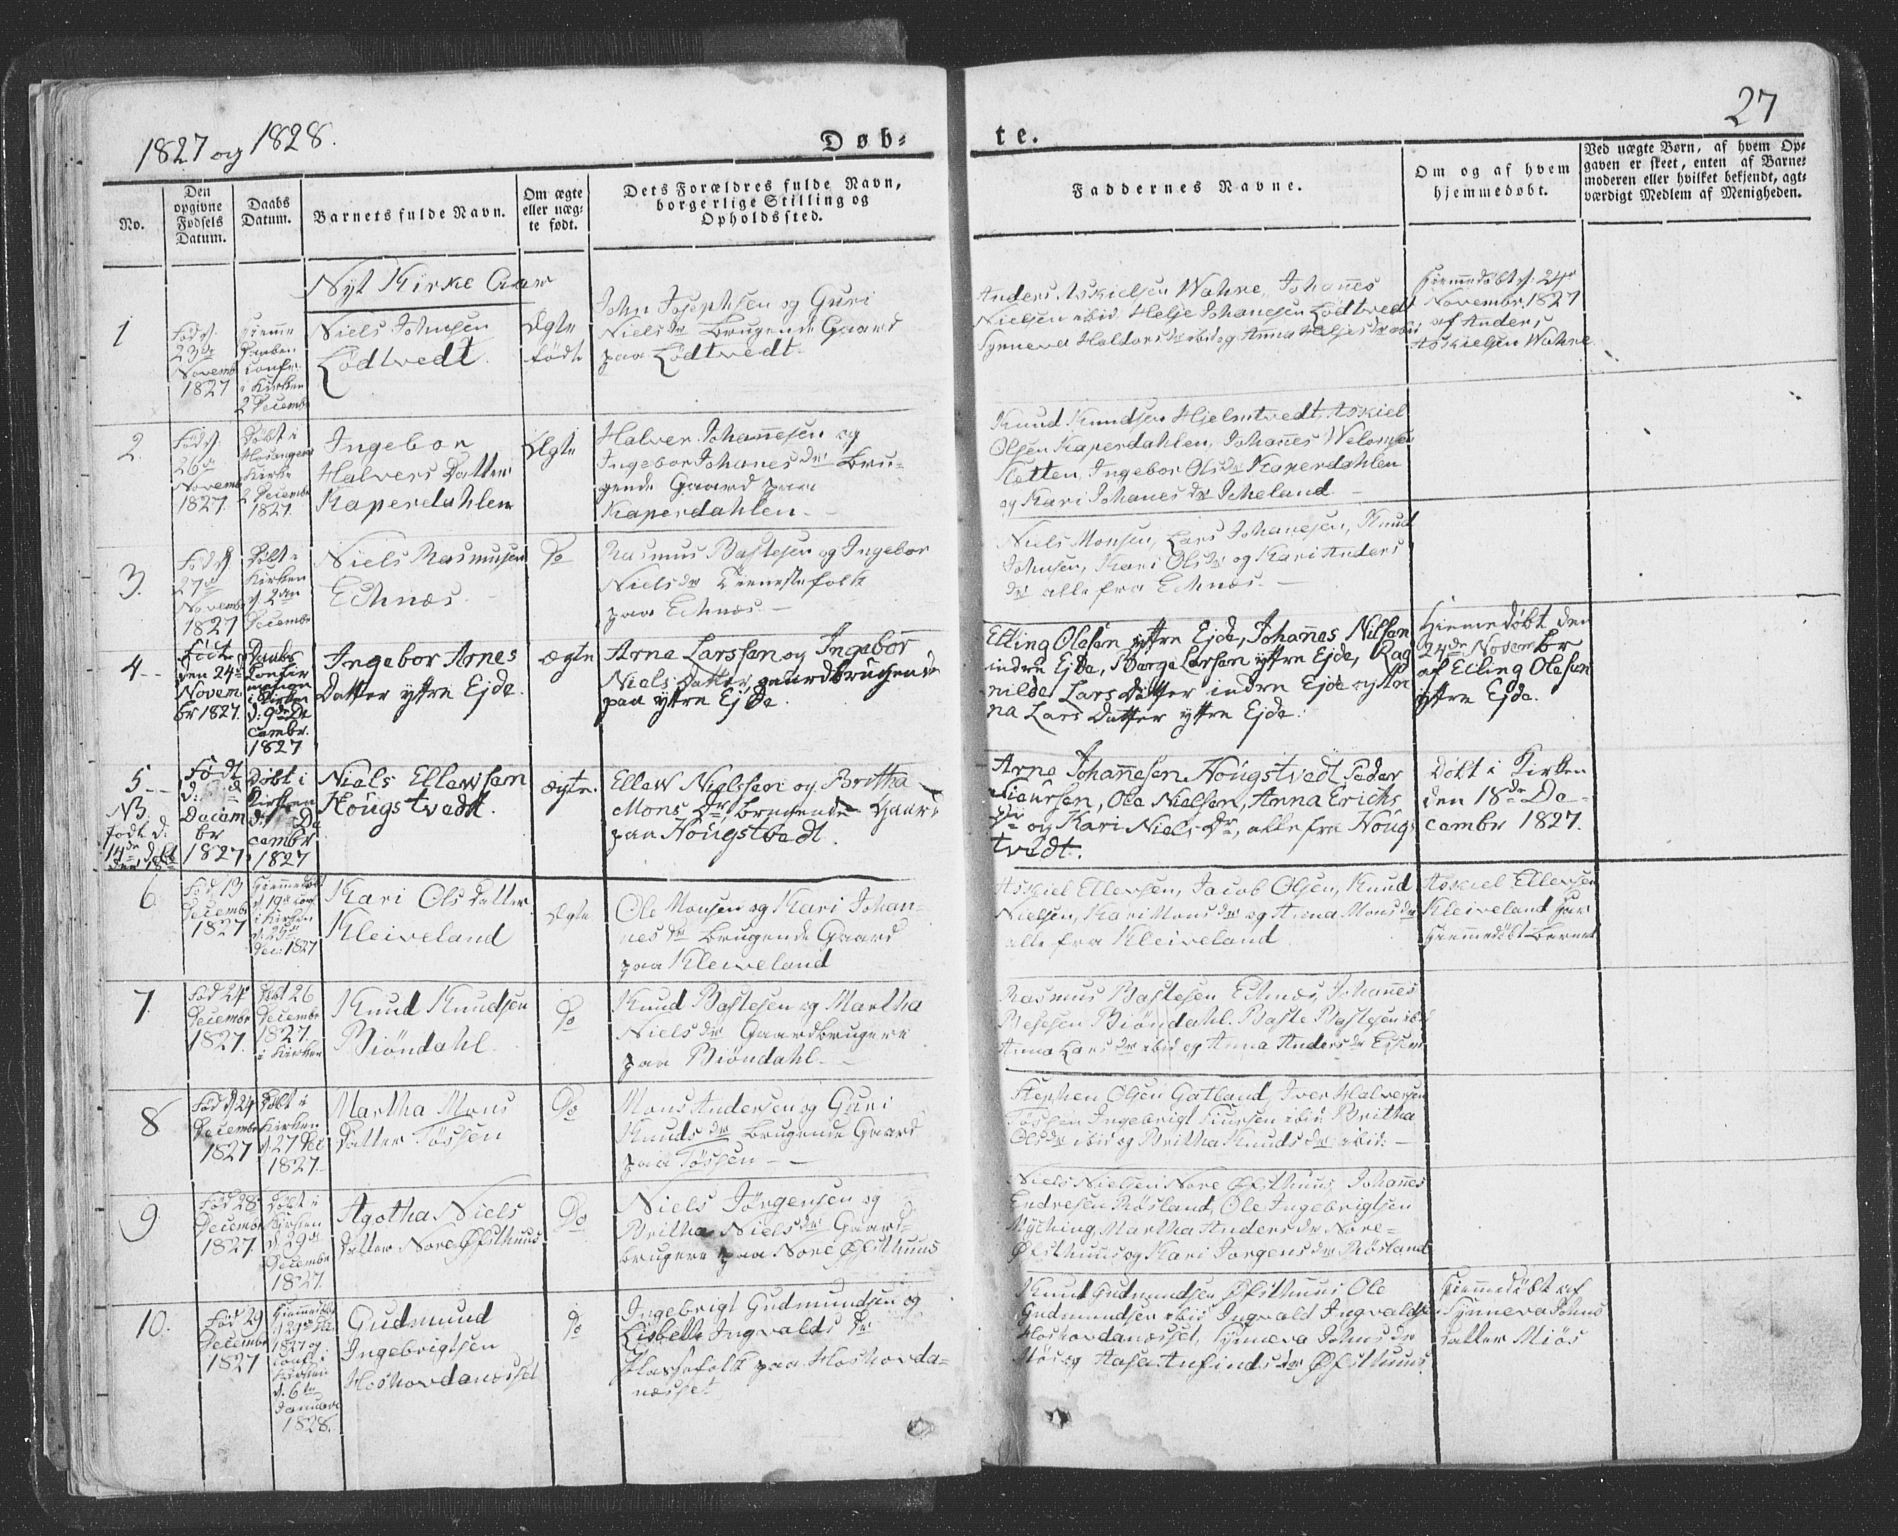 1827 og 1828.
Døb-
te.
27
No.
Den
opgivne
Fødsels
Datum.
Daabs
Datum.
Barnets fulde Navn.
Om ægte
eller uæg-
te født.
Dets Forældres fulde Navn,
borgerlige Stilling og
Opholdssted.
Faddernes Navne.
Om og af hvem
hjemmedøbt.
Ved uægte Børn, af hvem Op-
gaven er skeet, enten af Barne-
moderen eller hvilket bekjendt, agt-
værdigt Medlem af Menigheden.
Nyt Kirke Aar
1
Fød d.
23de
Novemb
1827
Hiemme
Daaben
Conf.
i Kirken
2 Decembr
Niels Johnsen
Lødtvedt.
Ægte
fødte
John Josephsen og Guri
Nielsdr Brugende Gaard
paa Lødtvedt.
Anders Askielsen Wahne, Johannes
Nielsen ibid Helje Johanesen Lødtvedt
Synneva Haldorsdr ibid og Anna Heljesdr ibid
Hiemmedøbt d. 24de
Novembr. 1827
af Anders
Askielsen Wahne
2.
Fød d.
26de
Novemb
1827.
Døbt i
Hosanger
Kirke
2 Decembr
1827.
Ingebor
Halvers Datter
Kaperdahlen
Ægte
Halver Johannesen og
Ingebor Johanesdr Bru-
gende Gaard paa
Kaperdahlen.
Knud Knudsen Hjelmtvedt, Askiel
Olsen Kaperdahlen, Johannes
Sletten, Ingebor Olsdr Kaperdahlen
og Kari Johanesdr Icheland
3.
Fød d.
27de
Novemb
1827
Døbt i
Kirken
d. 2den
Decembr
Niels Rasmusen
Echnæs.
Do
Rasmus Bastesen og Ingebor
Nielsdr Tienestefolk
paa Echnæs.
Niels Monsen, Lars Johanesen, Knud
Johnsen, Kari Olsdr og Kari Anders
dr alle fra Echnæs.
4--
Født
den 24de
Novem
br 1827.
Daabs
Confir
mation
i Kirken
d. 9de De
cembr.
1827
Ingebor Arnes
Datter yttre Ejde.
ægte
Arne Larssen og Ingebor
Niels Datter, gaardbrugende
paa yttre Ejde.
Elling Olesen yttre Ejde, Johannes Nilsen
indre Ejde, Børge Larsen yttre Ejde, Rag
nilde Lars Datter indre Ejde og An
na Lars Datter yttre Ejde.
Hiemmedøbt den
24de Novembr
af Elling Olesen
yttre Ejde.
5--
NB.
født d.
14de døbt
den 18de
Født
Decem
br
1827
Døbt i
Kirken
De
cembr
1827
Niels Ellewsen
Hougstvedt.
ægte.
Ellew Nielssen og Britha
Mons Dr, brugende Gaard
paa Hougstvedt.
Arne Johannesen Hougstvedt Peder
Siursen, Ole Nielsen, Anna Erichs
Dr og Kari Niels Dr, alle fra Houg
tvedt.
Døbt i Kirken
den 18de De-
cembr 1827.
6.
Fød 13
Decembr
1827
Hiemmedøbt
d. 19de Conf
i Kirken
d. 25de
Dec: 1827
Kari Ols datter
Kleiveland
Ægte
Ole Monsen og Kari Johan-
nesdr Brugende Gaard
paa Kleiveland
Askiel Ellevsen, Jacob Olsen, Knud
Nielsen, Kari Monsdr og Anna Monsdr
alle fra Kleiveland
Askiel Ellevsen
Kleiveland har
hiemmedøbt Barnet
7.
Fød 24de
Decembr
1827.
Døbt 26
Decembr
1827.
i Kirken
Knud Knudsen
Biöndahl.
Do
Knud Bastesen og Martha
Nielsdr Gaardbrugere
paa Biöndahl.
Rasmus Bastesen Echnæs, Johannes
Biöndahl. Baste Bastesen ibid
Anna Larsdr ibid og Anna Andersdr
8
Fød d 24
Decembr
1827
Døbt i
Kirken
d. 27 Dec
1827.
Martha Mons
datter Tössen
Do
Mons Andersen og Guri
Knudsdr Brugende Gaard
paa Tössen
Stephen Olsen Gatland, Iver Halversen
Tössen Ingebrigt Siursen ibid Britha
Olsdr ibid og Britha Knudsdr ibid.
9.
Fød 28
Decembr
1827.
Døbt i
Kirken
d. 29de
Decembr
1827.
Agotha Niels
datter Nore Øfsthuus
Do
Niels Jörgensen og
Britha Nielsdr Gaard-
brugere paa Nore Øfsthuus
Niels Nielsen Nore Øfsthuus, Johannes
Endresen Røsland, Ole Ingebrigtsen
Myching, Martha Andersdr Nore-
Øfsthuus og Kari Jörgensdr Røsland
10.
Fød 29
Decembr
1827
Hiemmedøbt
1827 og
Conf: i
Kirken
d. 6te
Januar
1828.
Gudmund
Ingebrigtsen
Hoshovdanæsset
Do
Ingebrigt Gudmundsen og
Lisbeth Ingvaldsdr
Plassefolk paa Hoshovda-
næsset
Knud Gudmundsen Øfsthuus Ole
Gudmundsen ibid Ingvald Ingvaldsen
Hoshovdanæsset, Synneva Johnsdr
Miös og Aasa Anfindsdr Øfsthuus
Hiemmedøbt af
Synneva Johns
datter Miös